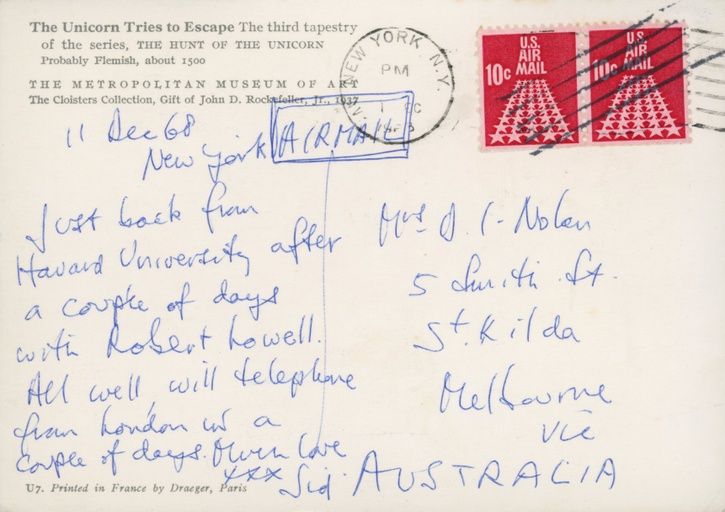 The Unicorn Tries to Escape The third tapestry
of the series, THE HUNT OF THE UNICORN
Probably Flemish, about 1500
THE METROPOLITAN MUSEUM OF ART
The Cloisters Collection, Gift of John D. Rockefeller, Jr., 1937
NEW YORK, N.Y.
PM
U.S.
AIR
MAIL
10c
U.S.
AIR
MAIL
10c
11 Dec 68
New York AIRMAIL
Just back from
Havard University after
a couple of days
with Robert Lowell.
All well, will telephone
from London in a
couple of days. Much love
xxx Sid
Mrs J. C. Nolan
5 Smith St.
St. Kilda
Melbourne
Vic
AUSTRALIA
U7. Printed in France by Draeger, Paris